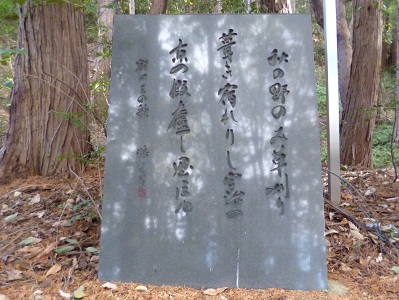 秋の野のみ草刈り
葺き宿れりし宇治の
京の仮廬し思ほゆ
額田王の歌